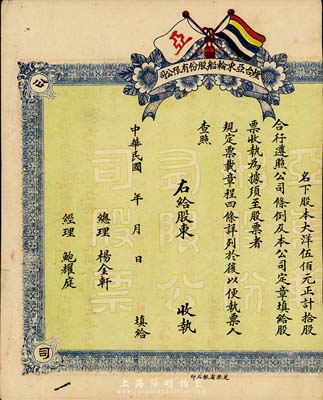 亞
煙台亞東輪船股份有限公司
公
司
名下股本大洋伍佰元正計拾股
合行遵照公司條例及本公司定章填給股
票收執為據須至股票者
規定票載章程四條詳列於後以便執票人
查照
右給股東 收執
中華民國 年 月 日 填給
總理 楊金軒
經理 鮑耀庭
司限公
司股票
芝罘
石印
上海陽明拍卖